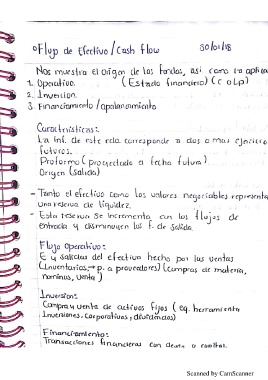 °Flujo de Efectivo / Cash flow 30/01/18
Nos muestra el origen de los fondos, así como la aplica
1. Operativo. (Estado financiero) (C o LP)
2. Inversion.
3. Financiamiento / apalancamiento
Características:
La inf. de este corresponde a dos o mas ejercicio
futuros.
Proforma (proyectado a fecha futura)
Origen (Salida)
- Tanto el efectivo como los valores negociables representa
una reserva de liquidez.
- Esta reserva se incrementa con los flujos de
entrada y disminuyen los f. de salida.
Flujo Operativo:
E y salidas del efectivo hecho por las ventas
(Inventarios, p. a proveedores) (Compras de materia,
nominas, venta)
Inversion:
Compra y venta de activos fijos (eg. herramienta
Inversiones, Corporativas, dividendos)
Financiamiento:
Transacciones financieras con deuda o capital.
Scanned by CamScanner